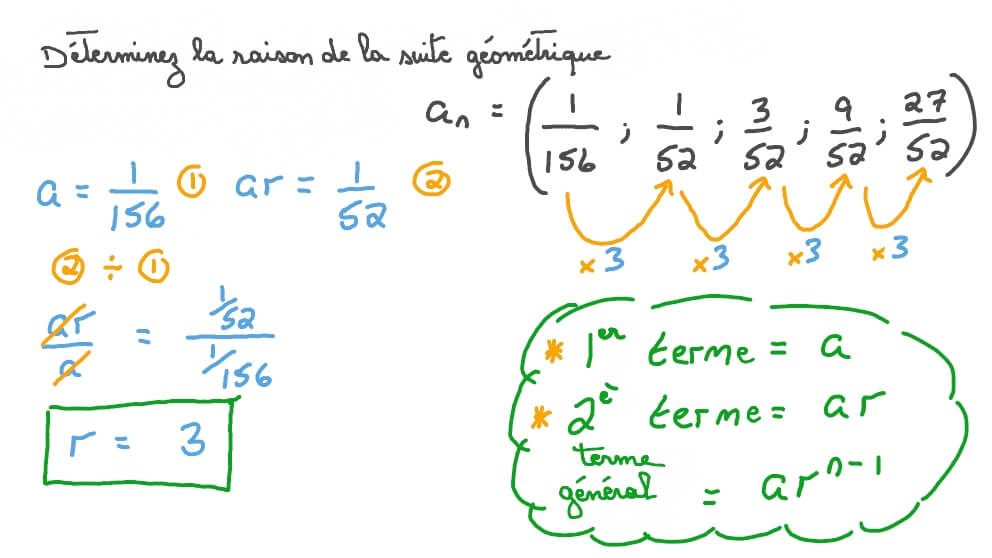 Déterminez la raison de la suite géométrique
aₙ = (1/156 ; 1/52 ; 3/52 ; 9/52 ; 27/52)
×3 ×3 ×3 ×3
a = 1/156 ① ar = 1/52 ②
② ÷ ①
ar/a = (1/52)/(1/156)
r = 3
* 1er terme = a
* 2è terme = ar
terme
général = arⁿ⁻¹